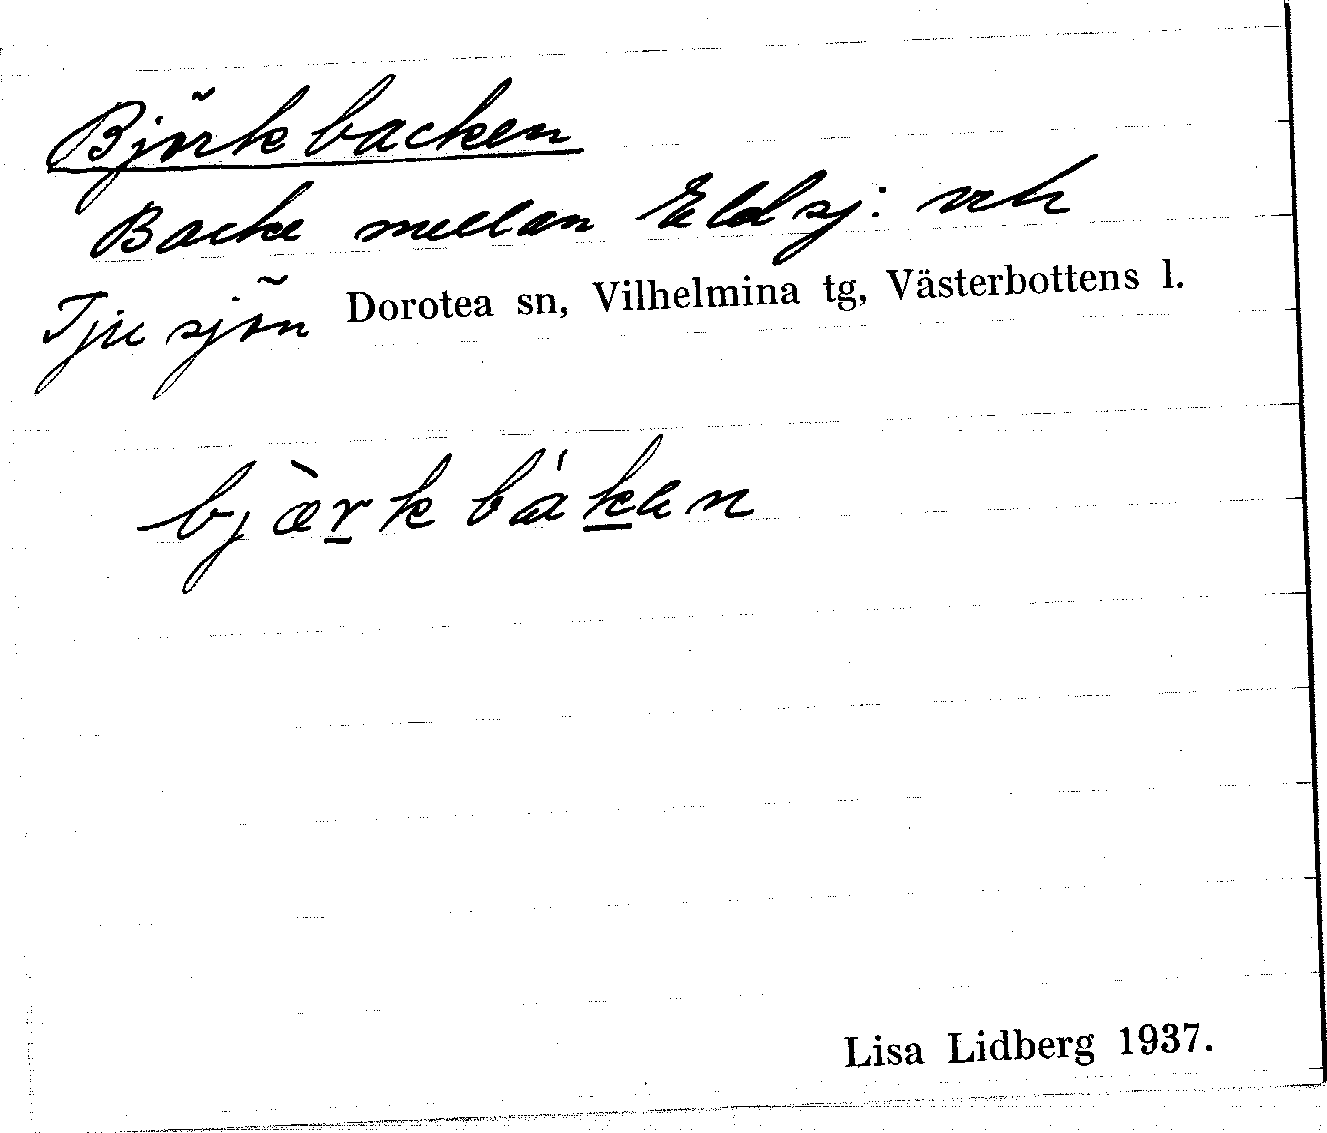 Björkbacken
Backe mellan Eldsj. och
Tjusjön Dorotea sn, Vilhelmina tg, Västerbottens l.
bjæ̀rkbákan
Lisa Lidberg 1937.